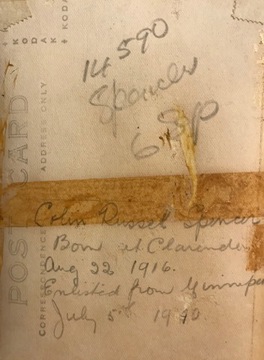 KODAK
KODA
14590
Spencer
6 Sep
POST CARD
ADDRESS ONLY
CORRESPONDENCE
Colin Russel Spencer
Born at Clarendon
Aug 22 1916.
Enlisted from Winnipeg
July 5th 1940.